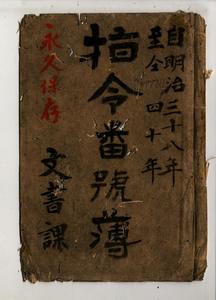 自明治三十八年
至仝四十年
指令番號簿
永久保存
文書課